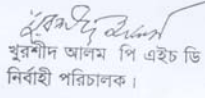 খুরশীদ আলম পি এইচ ডি
নির্বাহী পরিচালক।